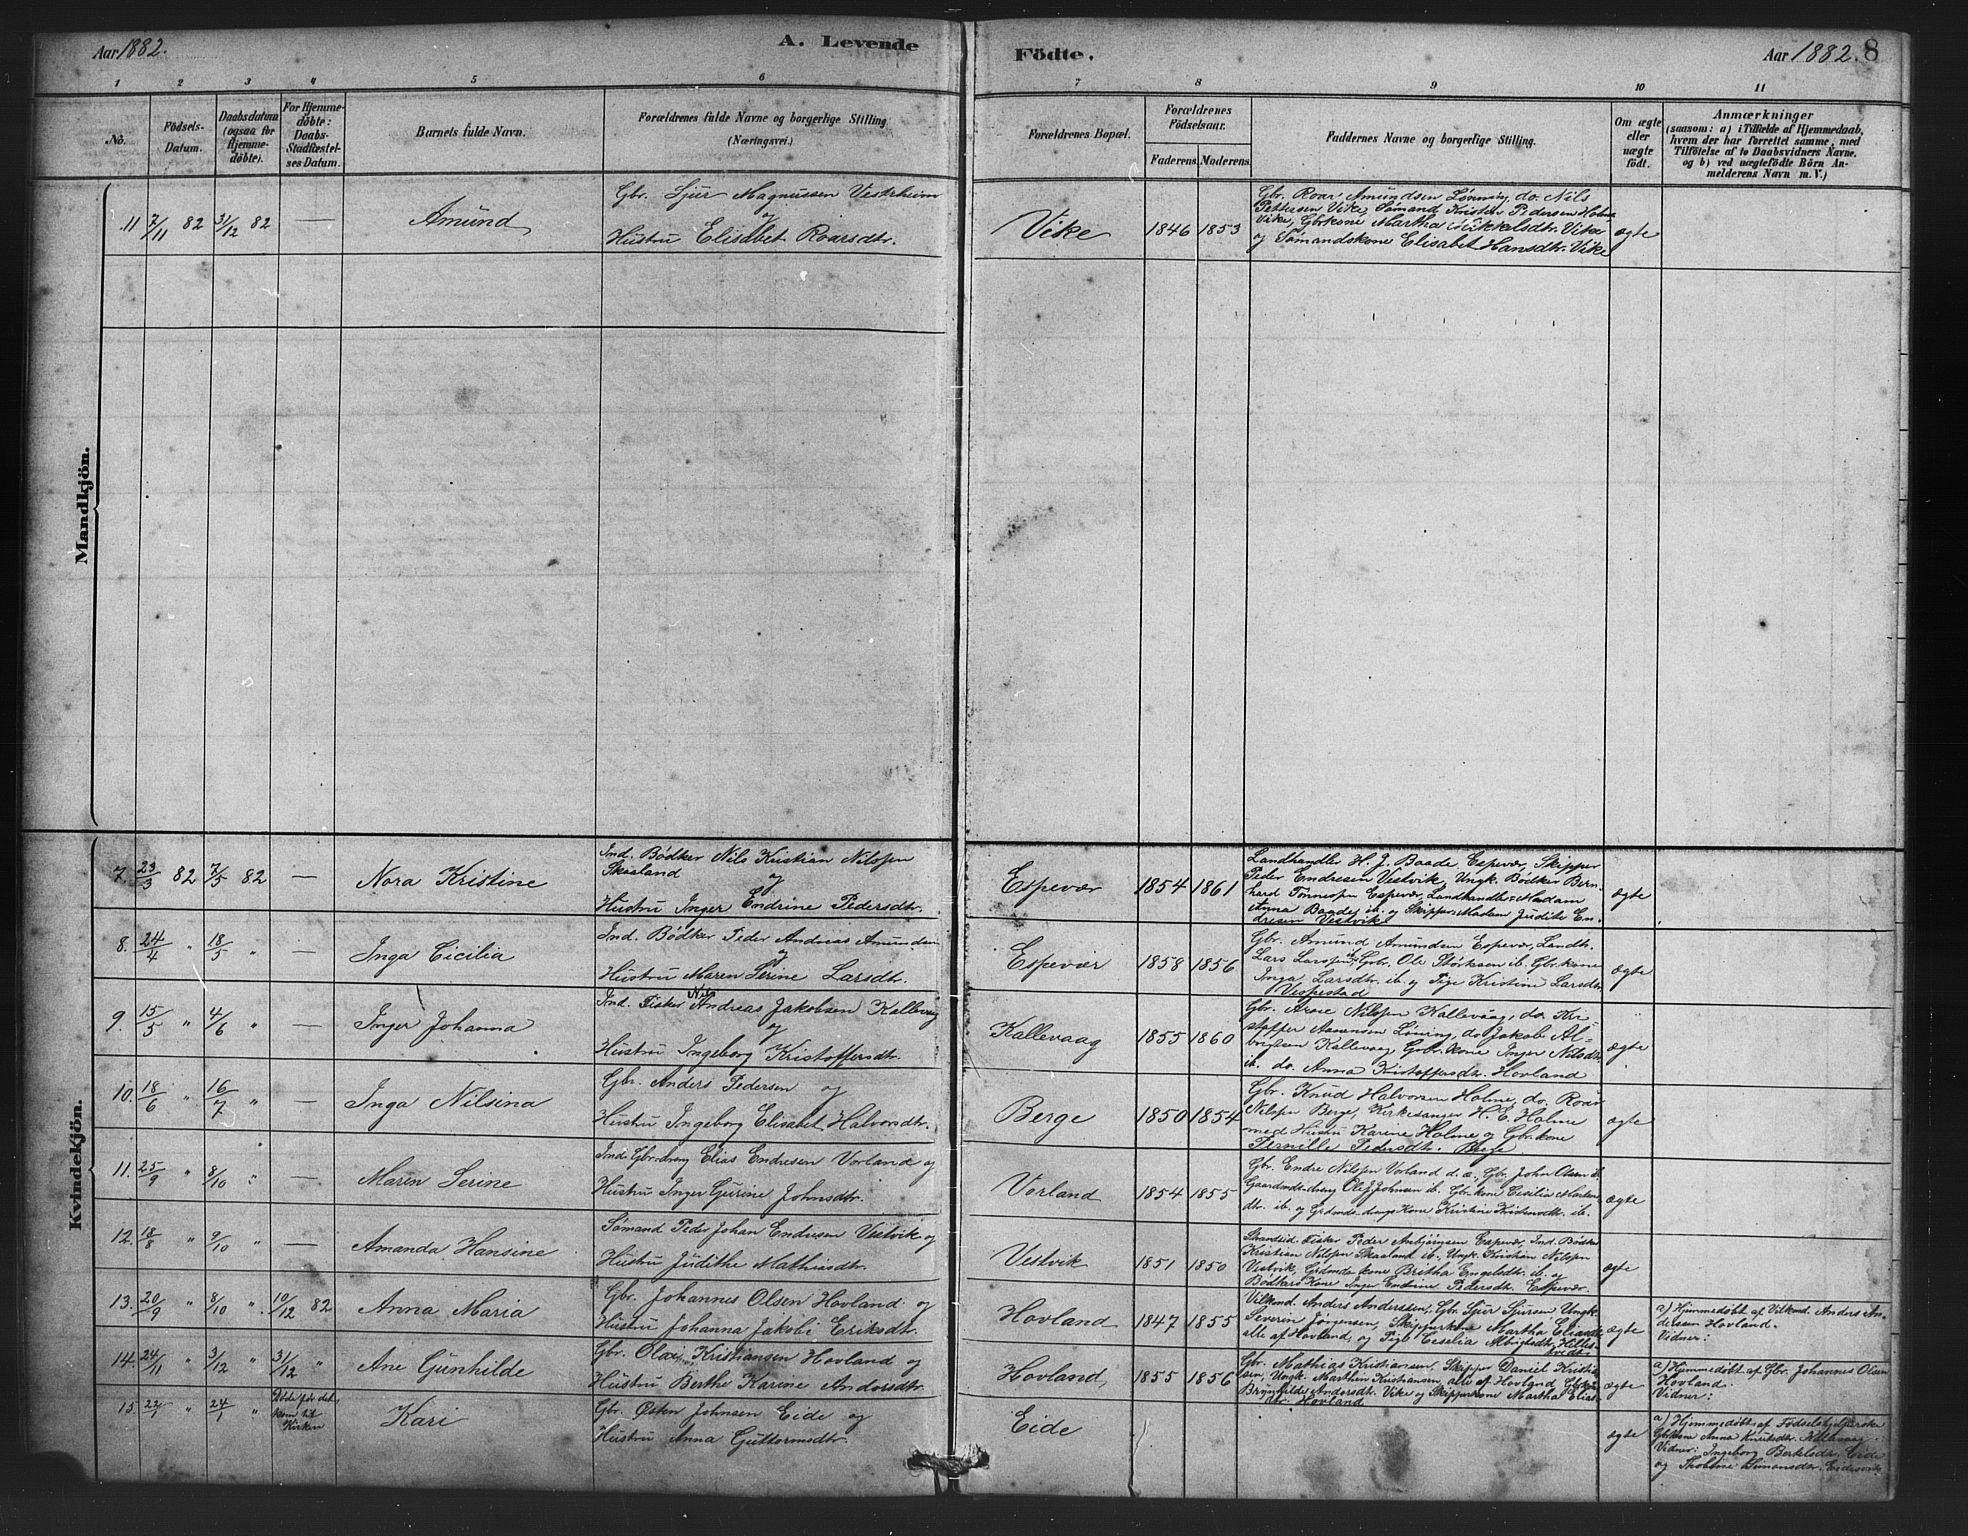 Aar 1882.
A. Levende
Födte.
Aar 1882. 8
1 2 3 4 5 6 7 8 9 10 11
No.
Födsels-
Datum.
Daabsdatum
(ogsaa for
Hjemme-
döbte).
For Hjemme-
döbte:
Daabs-
Stadfæstel-
ses Datum.
Barnets fulde Navn.
Forældrenes fulde Navne og borgerlige Stilling
(Næringsvei.)
Forældrenes Bopæl.
Forældrenes
Födselsaar.
Faderens. Moderens.
Faddernes Navne og borgerlige Stilling.
Om ægte
eller
uægte
födt.
Anmærkninger
(saasom: a) i Tilfælde af Hjemmedaab,
hvem der har forrettet samme, med
Tilföielse af to Daabsvidners Navne,
og b) ved uægtefödte Börn An-
melderens Navn m. V.)
Mandkjön.
11 7/11 82 3/12 82 — Amund
Gbr. Sjur Magnussen Vestrheim
og
Hustru Elisabet Roarsdtr.
Vike 1846 1853
Gbr. Roar Amundsen Lønning, do. Nils
Pettersen Vike, Sømand Kristen Pedersen Holme
Vike, Gbrkone Martha Mikkelsdtr. Vike
og Sømandskone Elisabet Hansdtr. Vike
ægte
Kvindekjön.
7. 23/3 82 7/5 82 — Nora Kristine
Ind. Bødker Nils Kristian Nilssen
Skaaland
og
Hustru Inger Endrine Pedersdtr.
Espevær 1854 1861
Landhandler H. J. Baade, Espevær, Skipper
Peder Endresen Vestvik, Ungk. Bødker Bern-
hard Tønnesen Espevær, Landhandler-Madam
Anna Baade ib. og Skipper-Madam Judithe En-
dresen Vestvik
ægte
8. 24/4 " 18/5 " — Inga Cicilia
Ind. Bødker Peder Andreas Amundsen
og
Hustru Maren Serine Larsdtr.
Espevær 1858 1856
Gbr. Amund Amundsen Espevær, Landh.
Lars Larssen ib. Gbr. Ole Størksen ib. Gbr.kone
Inga Larsdtr. ib. og Pige Kristine Larsdtr.
Vespestad
ægte
9. 15/5 " 4/6 " — Inger Johanna
Ind. Fisker Nils Andreas Jakobsen Kallevag
og
Hustru Ingeborg Kristoffersdtr.
Kallevaag 1855 1860
Gbr. Nilssen Kallevaag, do. Kri-
stoffer Lønning, do. Jakob Al-
brigtsen Kallevaag Gbr.kone Inger Nilsdtr.
ib. do. Anna Kristoffersdtr. Hovland
ægte
10. 18/6 " 16/7 " — Inga Nilsina
Gbr. Anders Pedersen og
Hustru Ingeborg Elisabet Halvorsdtr.
Berge 1850 1854
Gbr. Knud Halvorsen Holme, do. Roar
Nilssen Berge, Kirkesanger H. E. Holme
med Hustru Karine Holme og Gbr.kone
Pernille Pedersdtr. Berge
ægte
11. 25/9 " 8/10 " — Maren Serine
Ind. Gbr.dreng Elias Endresen Vorland og
Hustru Inger Gurine Johnsdtr.
Vorland 1854 1855
Gbr. Endre Nilssen Vorland d. æ., Gbr. John Olsen ib.
Gaardmds-dreng Ole J. Johnsen ib. Gbr.kone Cecilia
dtr. ib. og Grdmds-drengs Kone Kristine ib.
ægte
12. 18/8 " 9/10 " — Amanda Hansine
Sømand Peder Johan Endresen Vestvik og
Hustru Judithe Mathiasdtr.
Vestvik 1851 1850
Strandsid. Fisker Peder Anbjørnsen Espevær, Ind. Bødker
Kristian Nilssen Skaaland ib., Ungk. Christian Nilssen
Vestvik, Grdmdskone Britha Engelsdtr. ib. og
Bødkers Kone Inger Endrine Pedersdtr. Espevær.
ægte
13. 20/9 " 8/10 " 10/12 82 Anna Maria
Gbr. Johannes Olsen Hovland og
Hustru Johanna Jakobi Eriksdtr.
Hovland 1847 1855
Vilkmd. Anders Anderssen, Gbr. Sjur Sjursen, Ungk.
Severin Jørgensen, Skipperkone Martha Eliasdtr.
alle af Hovland, og Pige Ceselia
ægte
a) Hjemmedøbt af Vilkmd. Anders An-
dersen Hovland.
Vidner:
14. 24/11 " 3/12 " 31/12 " Ane Gunhilde
Gbr. Olai Kristiansen Hovland og
Hustru Berthe Karine Andersdtr.
Hovland, 1855 1856
Gbr. Mathias Kristiansen, Skipper Daniel Kristian-
sen, Ungk. Marthin Kristiansen, alle af Hovland, Gbrkone
Brynhilde Andersdtr. Vike og Skipperkone Martha Elias-
dtr. Hovland
ægte
a) Hjemmedøbt af Gbr. Johannes Olsen
Hovland.
Vidner:
15. 22/1 " 24/1 " Døde før det
kom til
Kirken Kari
Gbr. Østen Johnsen Eide og
Hustru Anna Guttormsdtr.
Eide
ægte
a) Hjemmedøbt af Fødselshjelperske
Gbrkone Anna Knutsdtr. Kallevaag.
Vidner: Ingeborg Bertelsdtr. Eide
og Simonsdtr. Eidesvik